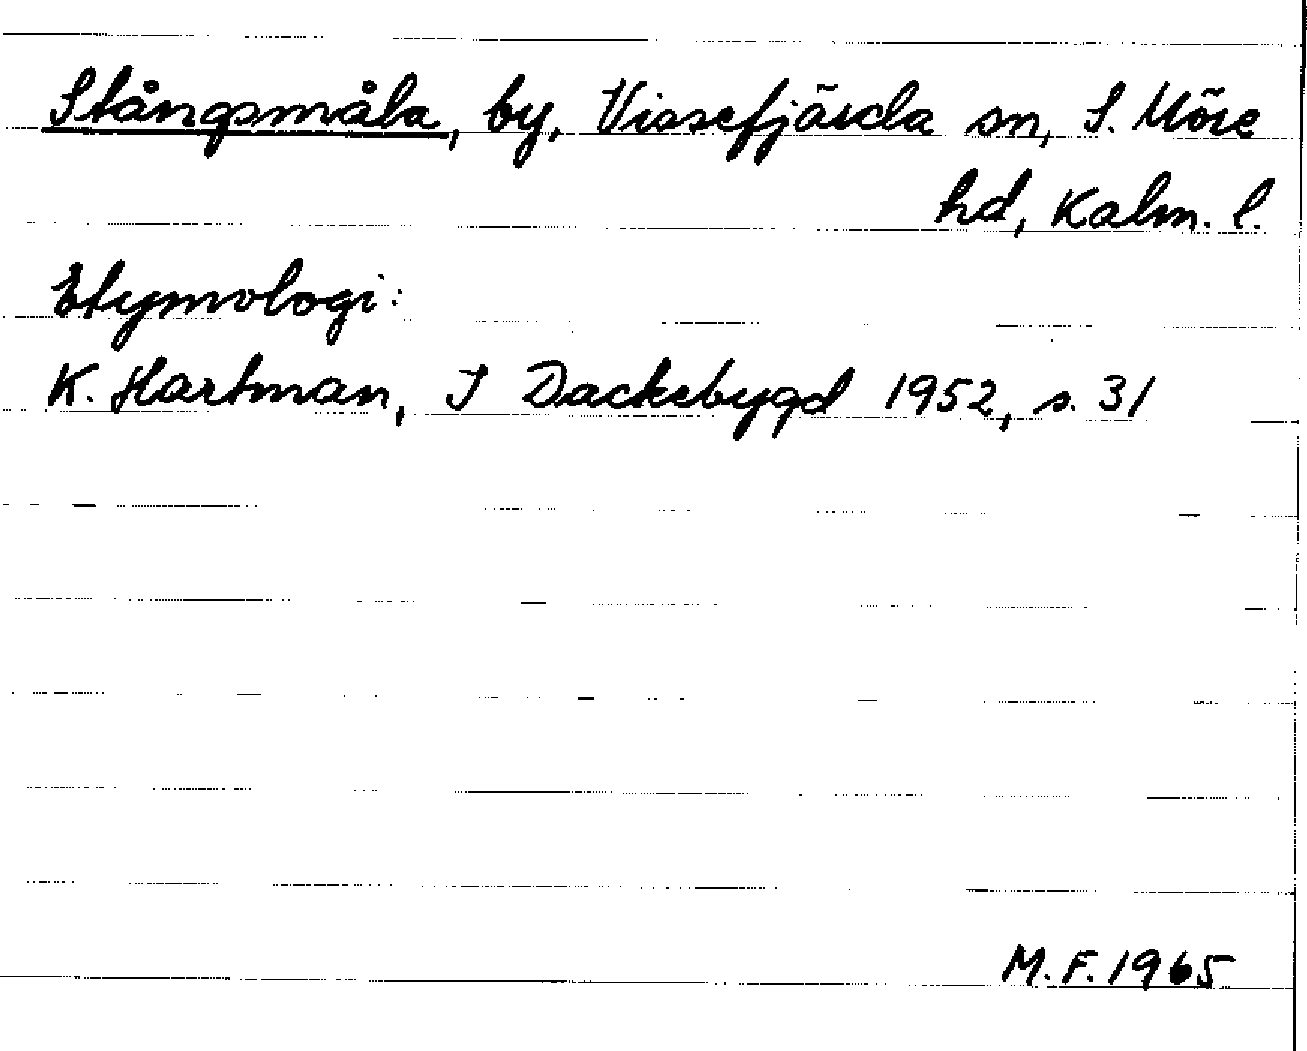 Stångsmåla, by, Vissefjärda sn, S. Möre
hd, Kalm. l.
Etymologi:
K. Hartman, I Dackebygd 1952, s. 31
M.F. 1965